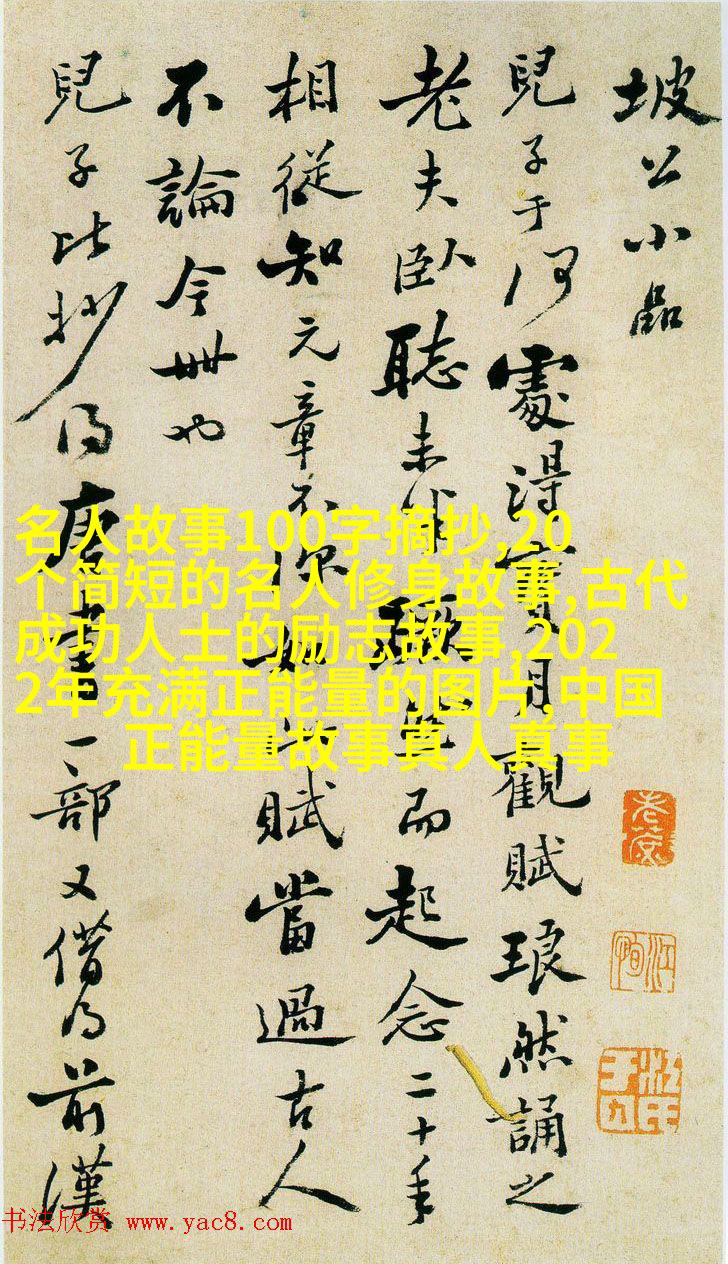 坡公小品
兒子于何處得寶月觀賦琅然誦之
老夫臥聽未半而起念二十年
相從知元章不深如此賦當過古人
不論今世也
兒子比抄得唐書一部又借得前漢
名人故事100字摘抄,20
个简短的名人修身故事,古代
成功人士的励志故事,202
2年充满正能量的图片,中国
正能量故事真人真事
书法欣赏 www.yac8.com